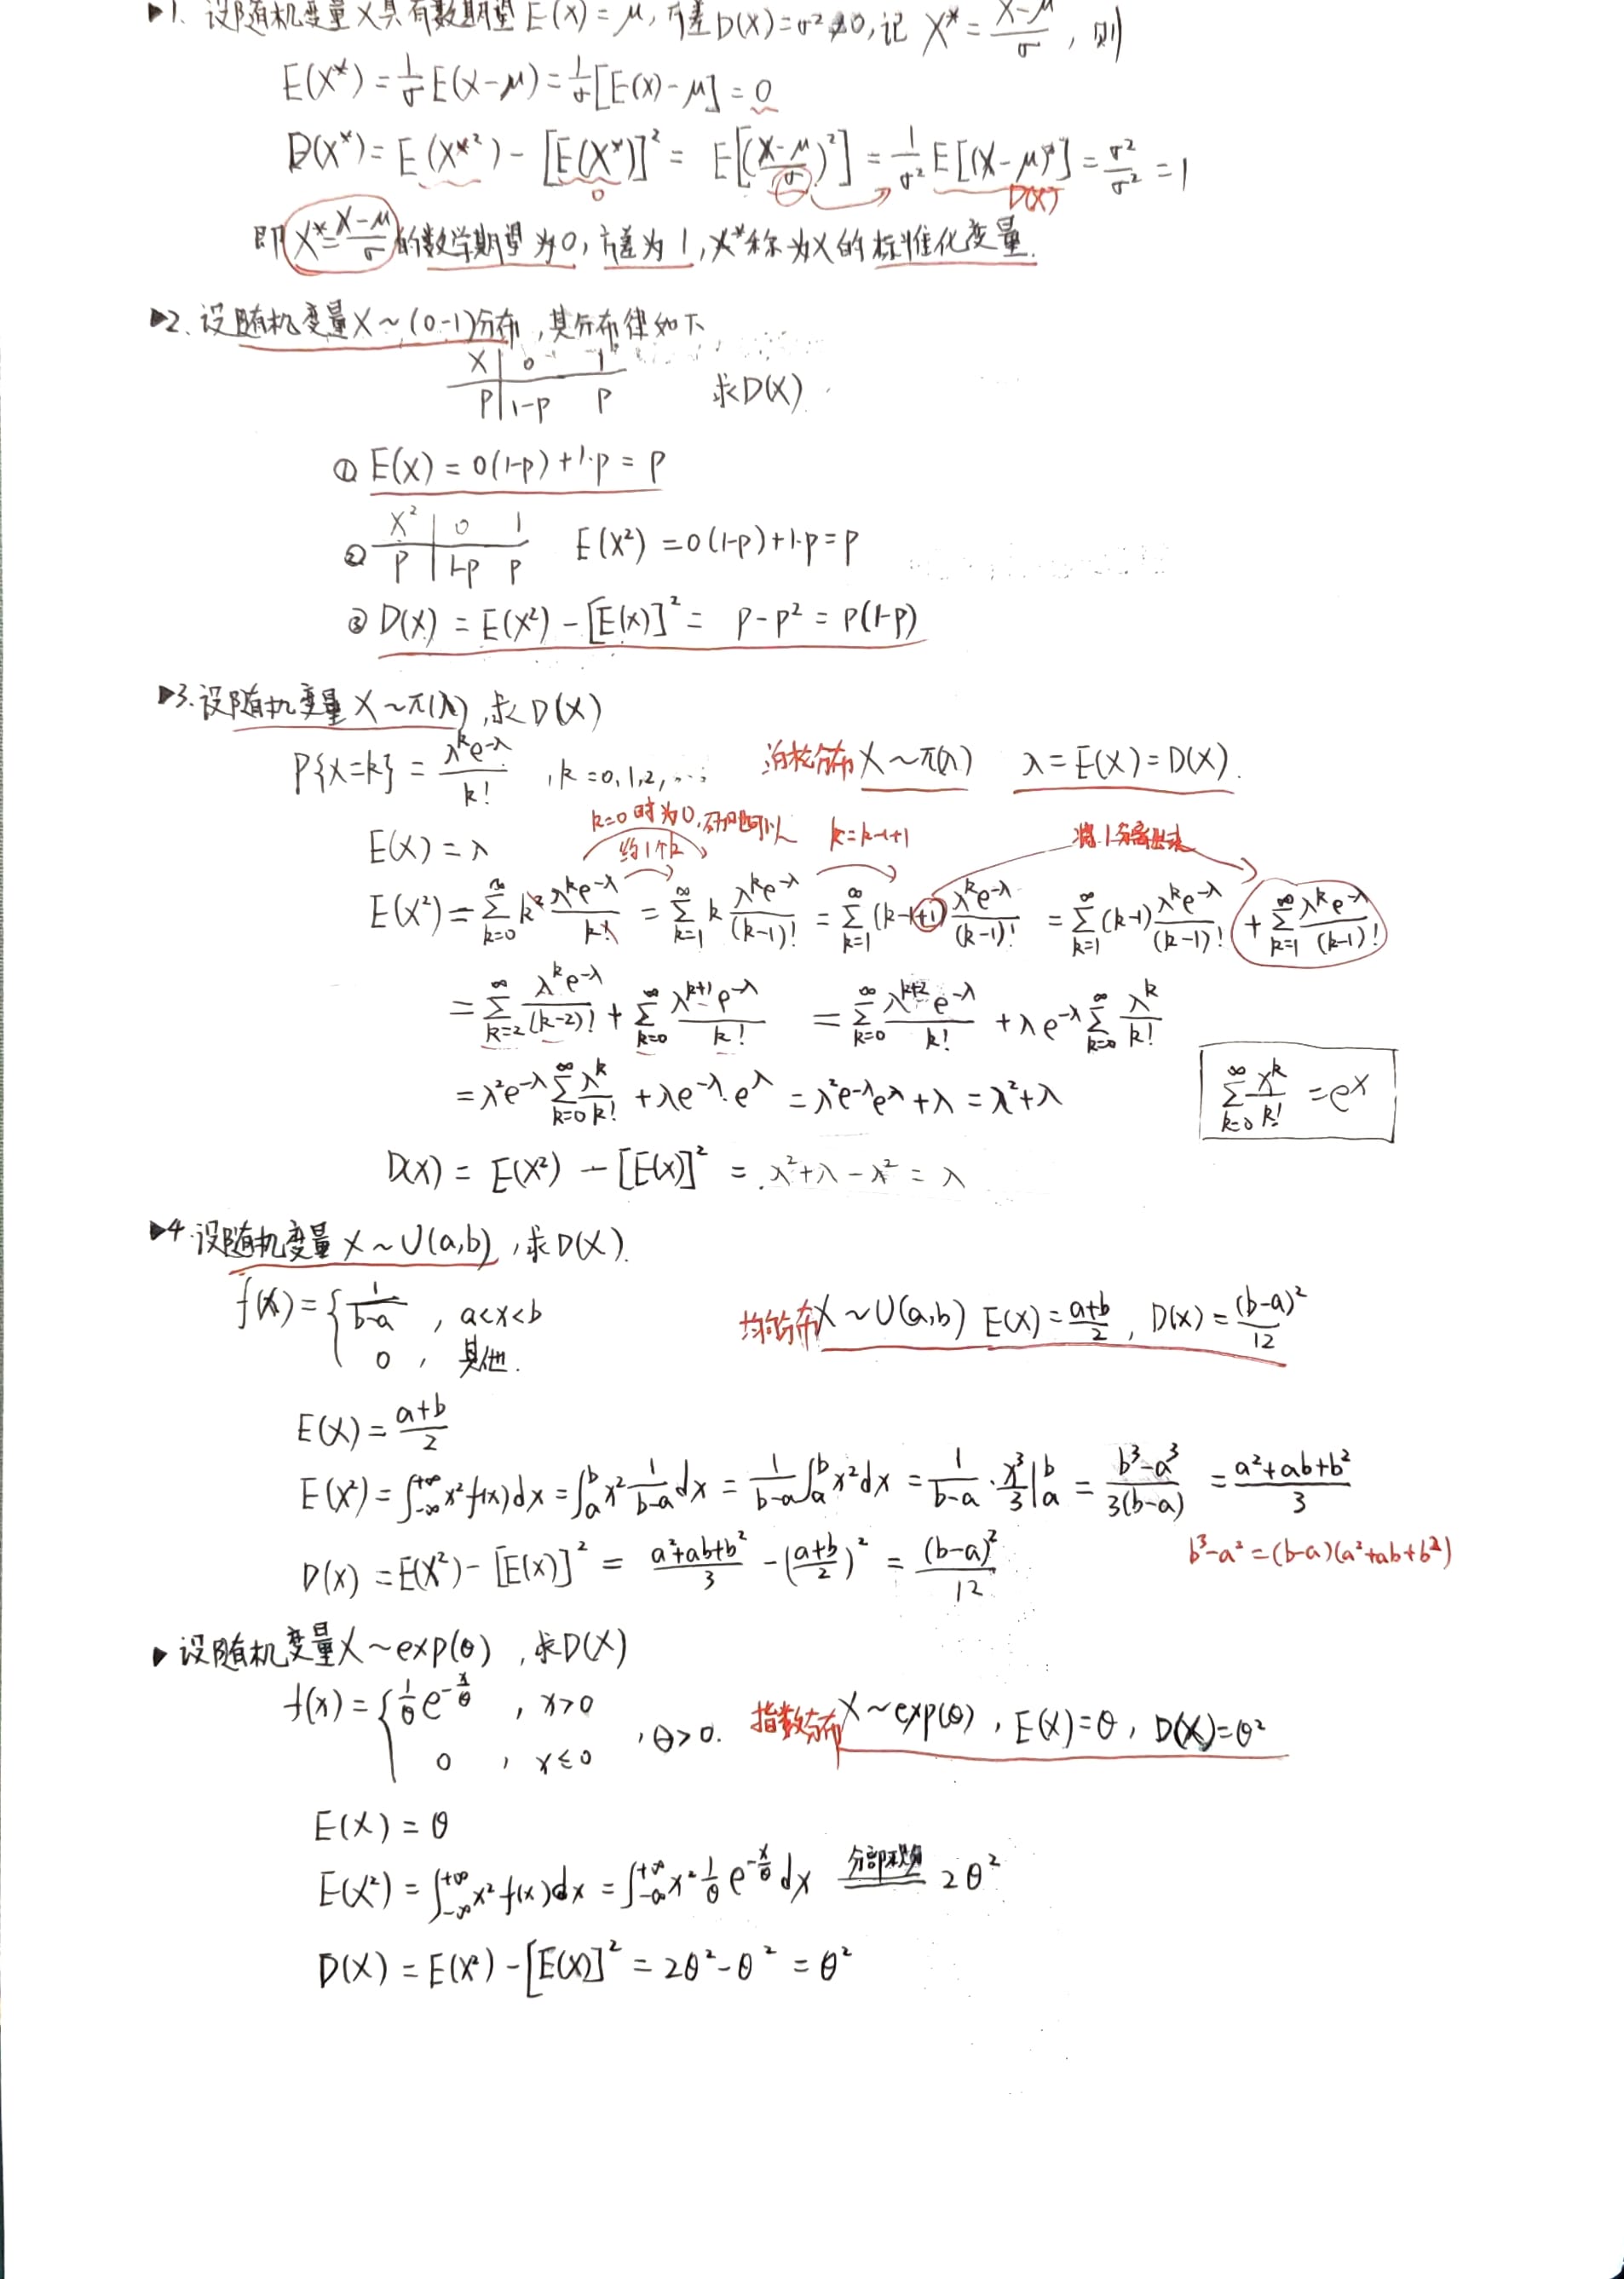 ▶1. 设随机变量X具有数期望E(X)=μ, 方差D(X)=σ²≠0, 记 X*=(X-μ)/σ, 则
E(X*)=1/σ E(X-μ)=1/σ[E(X)-μ]=0
D(X*)=E(X*²)-[E(X*)]²=E[((X-μ)/σ)²]=1/σ² E[(X-μ)²]=σ²/σ²=1
0 D(X)
即X*=(X-μ)/σ的数学期望为0, 方差为1, X*称为X的标准化变量.
▶2. 设随机变量X~(0-1)分布, 其分布律如下
X | 0 1
P | 1-p p 求D(X)
① E(X)=0(1-p)+1·p=p
② X² | 0 1
P | 1-p p E(X²)=0(1-p)+1·p=p
③ D(X)=E(X²)-[E(X)]²=p-p²=p(1-p)
▶3. 设随机变量X~π(λ), 求D(X)
P{X=k}=λ^k e^-λ/k! , k=0,1,2,…; 泊松分布X~π(λ) λ=E(X)=D(X).
k=0时为0, 可以
E(X)=λ 约1个k k=k-1+1 将1分离出来
E(X²)=∑_{k=0}^∞ k² λ^k e^-λ/k! =∑_{k=1}^∞ k λ^k e^-λ/(k-1)! =∑_{k=1}^∞ (k-1+1) λ^k e^-λ/(k-1)! =∑_{k=1}^∞ (k-1) λ^k e^-λ/(k-1)! +∑_{k=1}^∞ λ^k e^-λ/(k-1)!
=∑_{k=2}^∞ λ^k e^-λ/(k-2)! +∑_{k=0}^∞ λ^{k+1} e^-λ/k! =∑_{k=0}^∞ λ^{k+2} e^-λ/k! +λe^-λ ∑_{k=0}^∞ λ^k/k!
=λ²e^-λ ∑_{k=0}^∞ λ^k/k! +λe^-λ·e^λ=λ²e^-λ e^λ+λ=λ²+λ
∑_{k=0}^∞ x^k/k! =e^x
D(X)=E(X²)-[E(X)]²=λ²+λ-λ²=λ
▶4. 设随机变量X~U(a,b), 求D(X).
f(x)={ 1/(b-a) , a<x<b
0 , 其他.
均匀分布X~U(a,b) E(X)=(a+b)/2, D(X)=(b-a)²/12
E(X)=(a+b)/2
E(X²)=∫_{-∞}^{+∞} x²f(x)dx=∫_a^b x² 1/(b-a) dx=1/(b-a) ∫_a^b x²dx=1/(b-a)·x³/3|_a^b=(b³-a³)/3(b-a)=(a²+ab+b²)/3
D(X)=E(X²)-[E(X)]²=(a²+ab+b²)/3-((a+b)/2)²=(b-a)²/12
b³-a²=(b-a)(a²+ab+b²)
▶设随机变量X~exp(θ), 求D(X)
f(x)={ 1/θ e^{-x/θ} , x>0
0 , x≤0 , θ>0.
指数分布X~exp(θ), E(X)=θ, D(X)=θ²
E(X)=θ
E(X²)=∫_{-∞}^{+∞} x²f(x)dx=∫_{-∞}^{+∞} x² 1/θ e^{-x/θ} dx 分部积分 2θ²
D(X)=E(X²)-[E(X)]²=2θ²-θ²=θ²